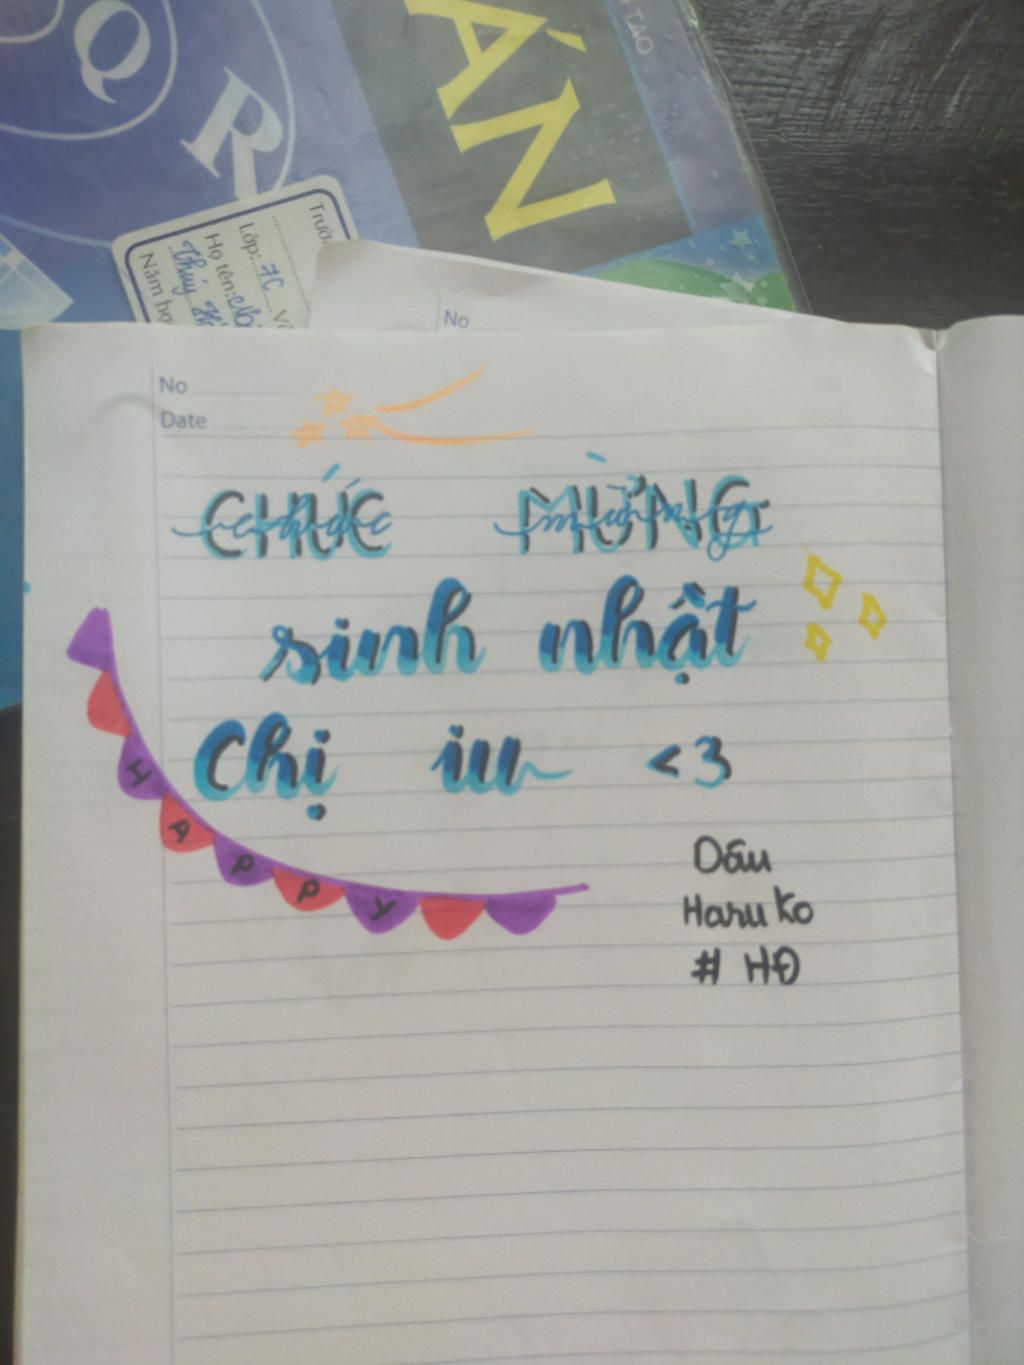 Q
R
ÁN
TẠO
Lớp: 7C
Họ tên:
Thúy
Năm họ
No
No
Date
CHÚC MỪNG
chúc mừng
sinh nhật
Chị iu <3
HAPPY
Dâu
Haruko
# HĐ